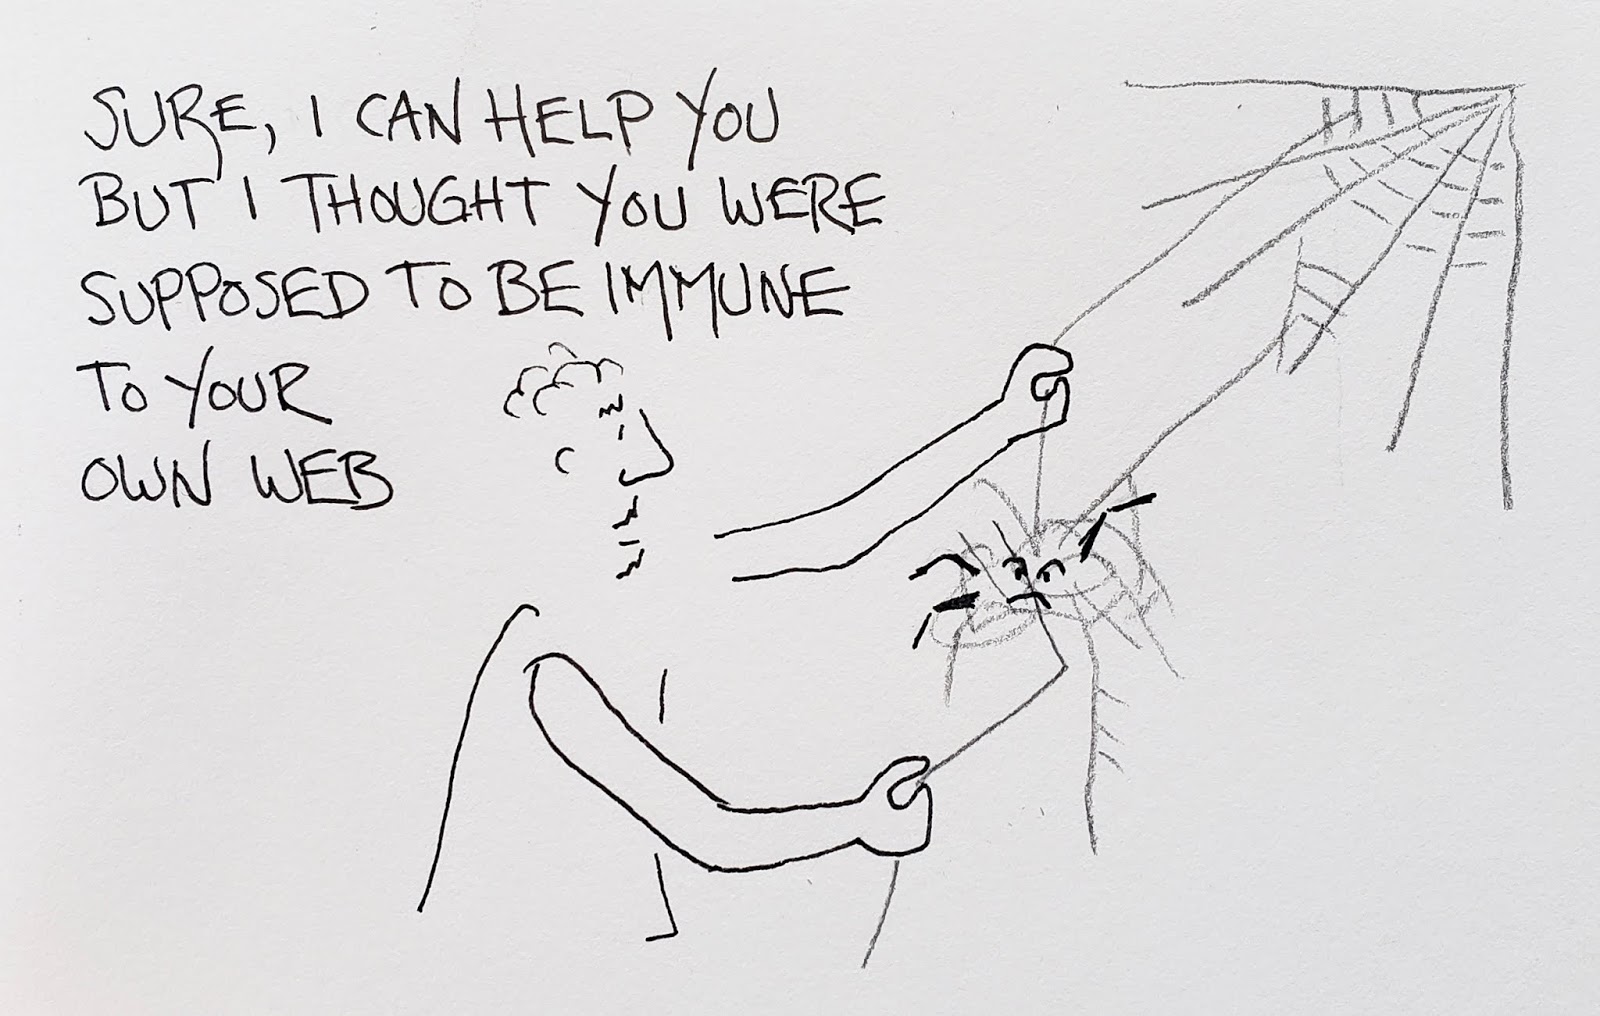 SURE, I CAN HELP YOU
BUT I THOUGHT YOU WERE
SUPPOSED TO BE IMMUNE
TO YOUR
OWN WEB